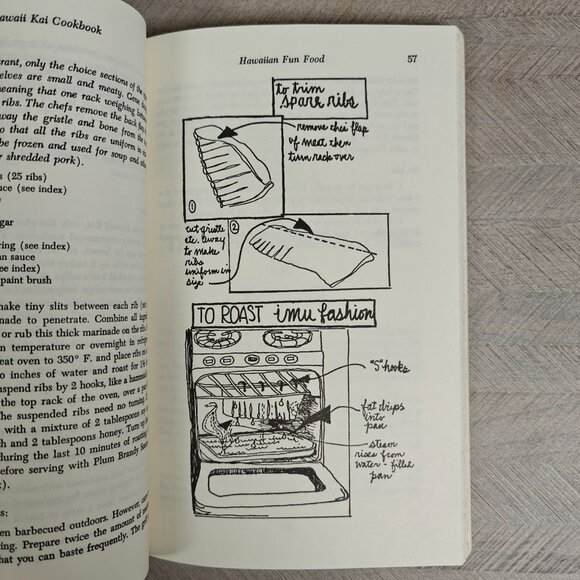 awaii Kai Cookbook
rant, only the choice sections of the
elves are small and meaty. Gone
eaning that one rack weighing
ribs. The chefs remove the back
way the gristle and bone from the
o that all the ribs are uniform in
be frozen and used for soup and other
r shredded pork).
s (25 ribs)
uce (see index)
gar
ring (see index)
an sauce
(see index)
paint brush
ake tiny slits between each rib
nade to penetrate. Combine all
or rub this thick marinade on the ribs.
m temperature or overnight in
eat oven to 350° F. and place ribs on
o inches of water and roast for 1½
uspend ribs by 2 hooks, like a
the top rack of the oven, over a
The suspended ribs need no turning.
with a mixture of 2 tablespoons
h and 2 tablespoons honey. Turn up
during the last 10 minutes of roasting
efore serving with Plum Brandy
x).
s:
en barbecued outdoors. However,
ring. Prepare twice the amount of
hat you can baste frequently. The
Hawaiian Fun Food 57
to trim
spare ribs
remove this flap
of meat then
turn rack over
1
2
cut gristle
etc. away
to make
ribs
uniform in
size
TO ROAST imu fashion
"S" hooks
fat drips
into
pan
steam
rises from
water-filled
pan